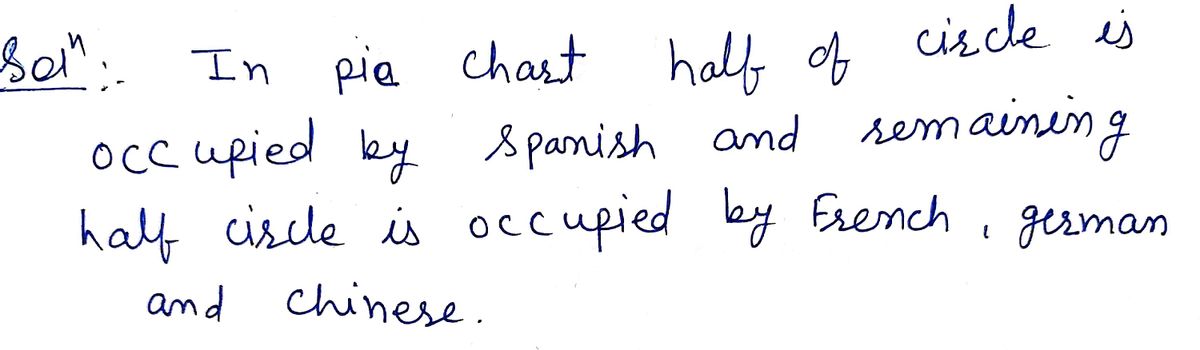 Solⁿ:- In pie chart half of circle is
occupied by Spanish and remaining
half circle is occupied by French, german
and chinese.